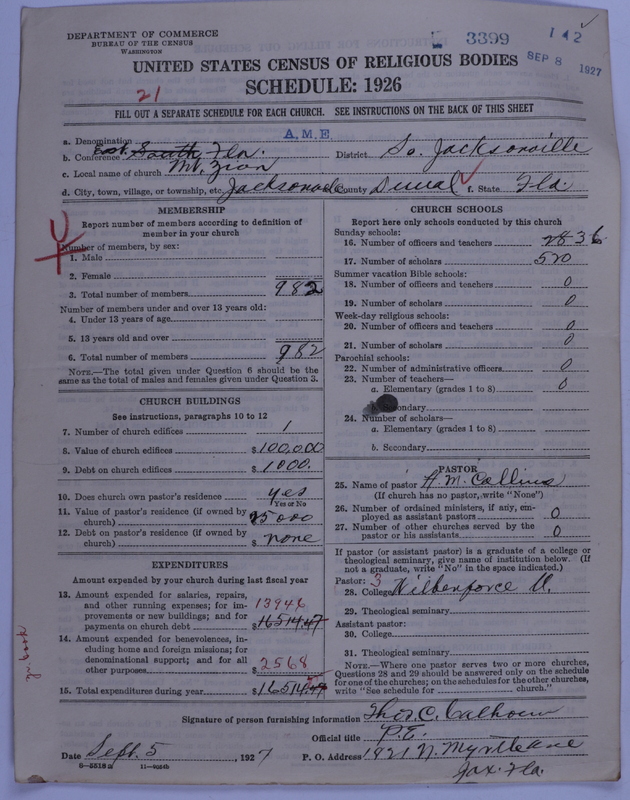 DEPARTMENT OF COMMERCE
BUREAU OF THE CENSUS
WASHINGTON
3399
142
SEP 8 1927
UNITED STATES CENSUS OF RELIGIOUS BODIES
SCHEDULE: 1926
21
FILL OUT A SEPARATE SCHEDULE FOR EACH CHURCH. SEE INSTRUCTIONS ON THE BACK OF THIS SHEET
a. Denomination A.M.E.
b. Conference East South Fla. District So. Jacksonville
c. Local name of church Mt. Zion
d. City, town, village, or township, etc. Jacksonville County Duval f. State Fla.
MEMBERSHIP
Report number of members according to definition of
member in your church
Number of members, by sex:
1. Male
2. Female
3. Total number of members 982
Number of members under and over 13 years old:
4. Under 13 years of age
5. 13 years old and over
6. Total number of members 982
NOTE.—The total given under Question 6 should be the
same as the total of males and females given under Question 3.
CHURCH BUILDINGS
See instructions, paragraphs 10 to 12
7. Number of church edifices 1
8. Value of church edifices $100,000
9. Debt on church edifices $1000.
10. Does church own pastor's residence yes
Yes or No
11. Value of pastor's residence (if owned by
church) $5000
12. Debt on pastor's residence (if owned by
church) $ none
EXPENDITURES
Amount expended by your church during last fiscal year
13. Amount expended for salaries, repairs,
and other running expenses; for im-
provements or new buildings; and for
payments on church debt $16514.47
13946
14. Amount expended for benevolences, in-
cluding home and foreign missions; for
denominational support; and for all
other purposes $2568
15. Total expenditures during year $16514.47
CHURCH SCHOOLS
Report here only schools conducted by this church
Sunday schools:
16. Number of officers and teachers 28 36
17. Number of scholars 520
Summer vacation Bible schools:
18. Number of officers and teachers 0
19. Number of scholars 0
Week-day religious schools:
20. Number of officers and teachers 0
21. Number of scholars 0
Parochial schools:
22. Number of administrative officers 0
23. Number of teachers—
a. Elementary (grades 1 to 8) 0
b. Secondary
24. Number of scholars—
a. Elementary (grades 1 to 8)
b. Secondary
PASTOR
25. Name of pastor A. M. Collins
(If church has no pastor, write "None")
26. Number of ordained ministers, if any, em-
ployed as assistant pastors 0
27. Number of other churches served by the
pastor or his assistants 0
If pastor (or assistant pastor) is a graduate of a college or
theological seminary, give name of institution below. (If
not a graduate, write "No" in the space indicated.)
Pastor: 3
28. College Wilberforce U.
29. Theological seminary
Assistant pastor:
30. College
31. Theological seminary
NOTE.—Where one pastor serves two or more churches,
Questions 28 and 29 should be answered only on the schedule
for one of the churches; on the schedules for the other churches,
write "See schedule for church."
Signature of person furnishing information Thos. C. Calhoun
Official title P.E.
Date Sept. 5, 1927 P. O. Address 1921 N. Myrtle Ave
Jax. Fla.
6-5518a 11-9054b